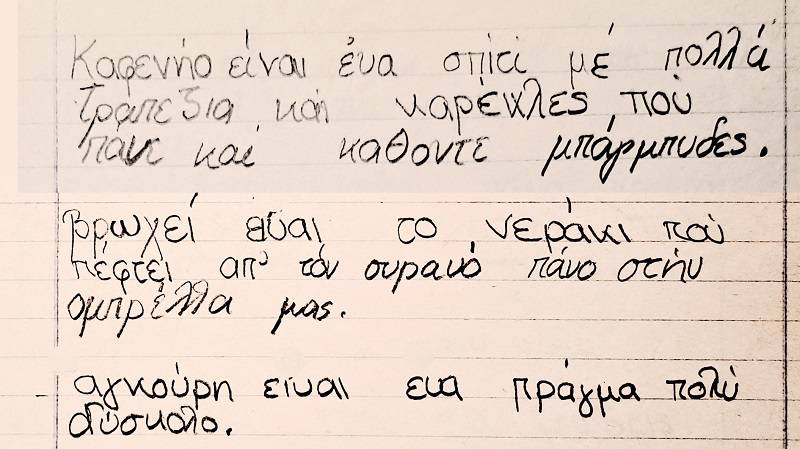 Καφενήο είναι ένα σπίτι μέ πολλά
τραπεζια και καρέκλες πού
πάνε και καθοντε μπάρμπυδες.
βρωχεί είναι το νεράκι πού
πέφτει απ' τόν ουρανό πάνο στήν
ομπρέλλα μας.
αγκούρη ειναι ενα πράγμα πολύ
δύσκολο.